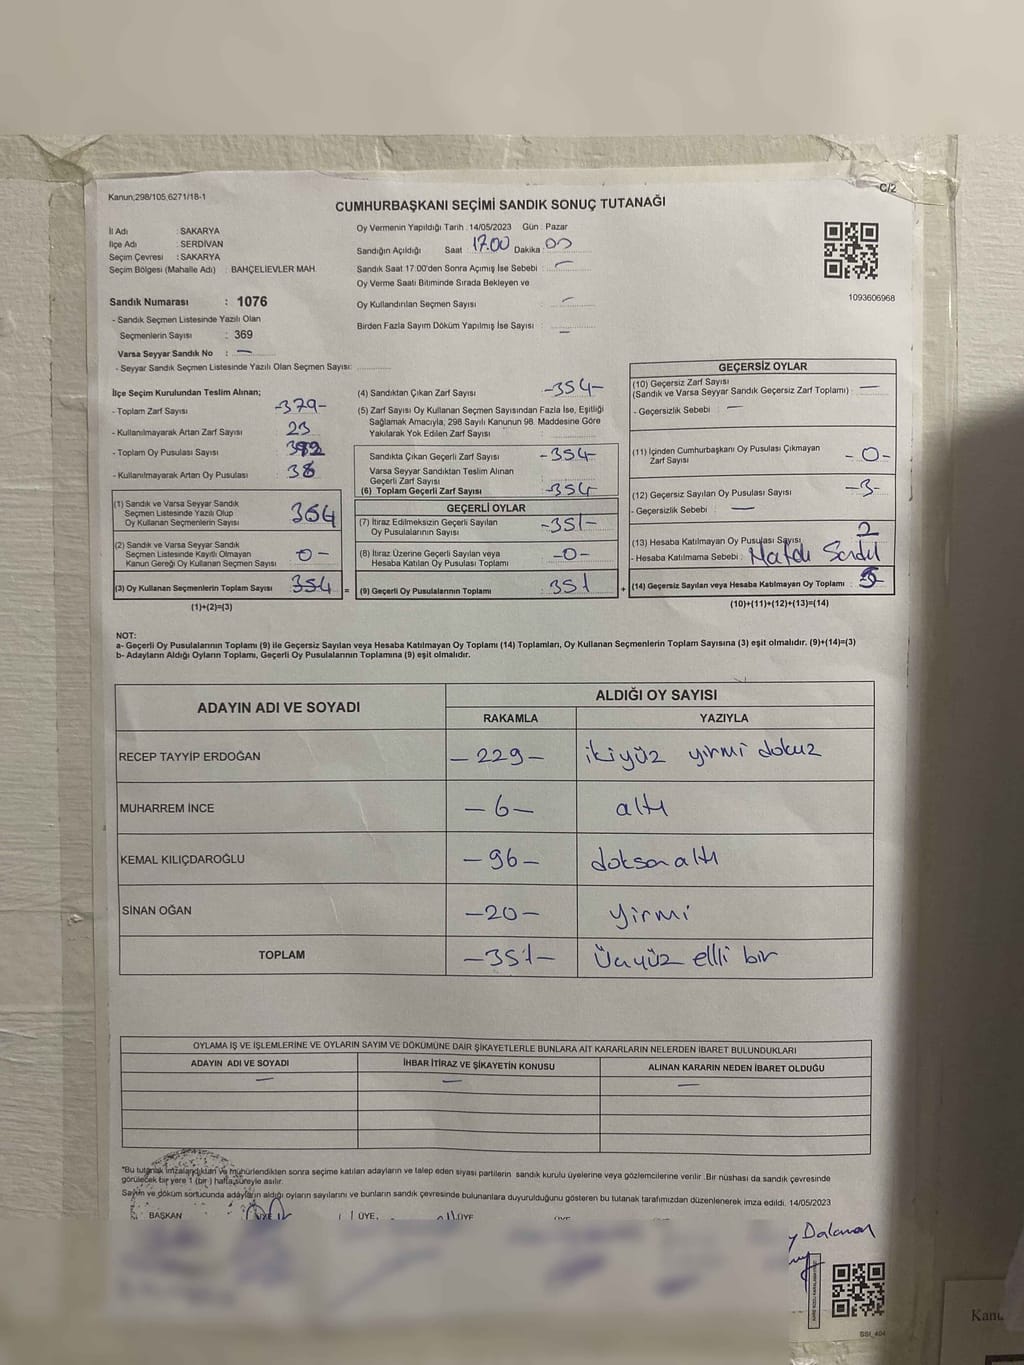 Kanun;298/105,6271/18-1
C/2
CUMHURBAŞKANI SEÇİMİ SANDIK SONUÇ TUTANAĞI
İl Adı : SAKARYA
İlçe Adı : SERDİVAN
Seçim Çevresi : SAKARYA
Seçim Bölgesi (Mahalle Adı) : BAHÇELİEVLER MAH.
Oy Vermenin Yapıldığı Tarih : 14/05/2023 Gün : Pazar
Sandığın Açıldığı Saat : 17.00 Dakika : 00
Sandık Saat 17:00'den Sonra Açımış İse Sebebi : —
Oy Verme Saati Bitiminde Sırada Bekleyen ve
Oy Kullandırılan Seçmen Sayısı : —
Birden Fazla Sayım Döküm Yapılmış İse Sayısı : —
1093606968
Sandık Numarası : 1076
- Sandık Seçmen Listesinde Yazılı Olan
Seçmenlerin Sayısı : 369
Varsa Seyyar Sandık No : —
- Seyyar Sandık Seçmen Listesinde Yazılı Olan Seçmen Sayısı:
İlçe Seçim Kurulundan Teslim Alınan;
- Toplam Zarf Sayısı : -379-
- Kullanılmayarak Artan Zarf Sayısı : 25
- Toplam Oy Pusulası Sayısı :
- Kullanılmayarak Artan Oy Pusulası :
(1) Sandık ve Varsa Seyyar Sandık
Seçmen Listesinde Yazılı Olup
Oy Kullanan Seçmenlerin Sayısı : 354
(2) Sandık ve Varsa Seyyar Sandık
Seçmen Listesinde Kayıtlı Olmayan
Kanun Gereği Oy Kullanan Seçmen Sayısı : 0-
(3) Oy Kullanan Seçmenlerin Toplam Sayısı : 354
(1)+(2)=(3)
(4) Sandıktan Çıkan Zarf Sayısı : -354-
(5) Zarf Sayısı Oy Kullanan Seçmen Sayısından Fazla İse, Eşitliği
Sağlamak Amacıyla, 298 Sayılı Kanunun 98. Maddesine Göre
Yakılarak Yok Edilen Zarf Sayısı :
Sandıkta Çıkan Geçerli Zarf Sayısı : -354-
Varsa Seyyar Sandıktan Teslim Alınan
Geçerli Zarf Sayısı :
(6) Toplam Geçerli Zarf Sayısı : -354
GEÇERLİ OYLAR
(7) İtiraz Edilmeksizin Geçerli Sayılan
Oy Pusulalarının Sayısı : -351-
(8) İtiraz Üzerine Geçerli Sayılan veya
Hesaba Katılan Oy Pusulası Toplamı : -0-
= (9) Geçerli Oy Pusulalarının Toplamı : 351
GEÇERSİZ OYLAR
(10) Geçersiz Zarf Sayısı
(Sandık ve Varsa Seyyar Sandık Geçersiz Zarf Toplamı) : —
- Geçersizlik Sebebi : —
(11) İçinden Cumhurbaşkanı Oy Pusulası Çıkmayan
Zarf Sayısı : -0-
(12) Geçersiz Sayılan Oy Pusulası Sayısı : -3-
- Geçersizlik Sebebi : —
(13) Hesaba Katılmayan Oy Pusulası Sayısı : 2
- Hesaba Katılmama Sebebi :
+ (14) Geçersiz Sayılan veya Hesaba Katılmayan Oy Toplamı :
(10)+(11)+(12)+(13)=(14)
NOT:
a- Geçerli Oy Pusulalarının Toplamı (9) ile Geçersiz Sayılan veya Hesaba Katılmayan Oy Toplamı (14) Toplamları, Oy Kullanan Seçmenlerin Toplam Sayısına (3) eşit olmalıdır. (9)+(14)=(3)
b- Adayların Aldığı Oyların Toplamı, Geçerli Oy Pusulalarının Toplamına (9) eşit olmalıdır.
ADAYIN ADI VE SOYADI ALDIĞI OY SAYISI
RAKAMLA YAZIYLA
RECEP TAYYİP ERDOĞAN -229- ikiyüz yirmi dokuz
MUHARREM İNCE -6- altı
KEMAL KILIÇDAROĞLU -96- doksan altı
SİNAN OĞAN -20- yirmi
TOPLAM -351- Üçyüz elli bir
OYLAMA İŞ VE İŞLEMLERİNE VE OYLARIN SAYIM VE DÖKÜMÜNE DAİR ŞİKAYETLERLE BUNLARA AİT KARARLARIN NELERDEN İBARET BULUNDUKLARI
ADAYIN ADI VE SOYADI İHBAR İTİRAZ VE ŞİKAYETİN KONUSU ALINAN KARARIN NEDEN İBARET OLDUĞU
— — —
*Bu tutanak imzalandıktan ve mühürlendikten sonra seçime katılan adayların ve talep eden siyasi partilerin sandık kurulu üyelerine veya gözlemcilerine verilir. Bir nüshası da sandık çevresinde
görülecek bir yere 1 (bir) hafta süreyle asılır.
Sayım ve döküm sonucunda adayların aldığı oyların sayılarını ve bunların sandık çevresinde bulunanlara duyurulduğunu gösteren bu tutanak tarafımızdan düzenlenerek imza edildi. 14/05/2023
BAŞKAN ÜYE ÜYE ÜYE
SSİ_404
Kanu